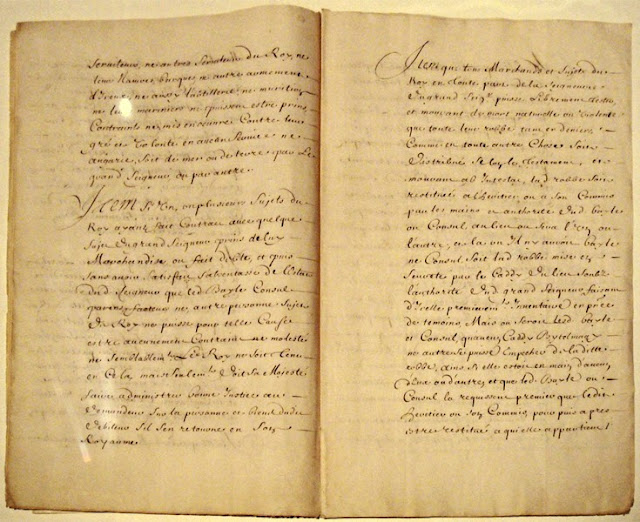 serviteurs, ne autres serviteurs du Roy, ne
leurs Navires, barques ne autre armement
ne artillerie ne munitions
ne leurs mariniers ne puissent estre prins
Contraints ne mis en œuvre Contre leur
gré et volonté en aucun service ne
angarie, soit de mer ou de terre par Le
grand Seigneur ou par autre.
Item si l'un, ou plusieurs Sujets du
Roy ayant fait Contract avec quelque
Sujet du grand Seigneur prins de luy
Marchandise ou fait debte, et puis
sans avoir satisfait s'absentast de l'Estat
dud Seigneur que led Bayle Consul
parens facteur ne autre personne Sujet
du Roy ne puisse pour telle Cause
estre aucunement Contraint ne molesté
ne Semblablemt Le Roy ne soit tenu
en Cela mais seulemt doit Sa Majesté
faire administrer bonne Justice au
demandeur Sur la personne et biens dudit
debiteur s'il s'en retourne en Son
Royaume
Item que tous Marchands et Sujets du
Roy en toute part de la Seigneurie
du grand Seigr puisse Librement tester
et mourant de mort naturelle ou violente
que toute leur robbe tant en deniers
Comme en toute autre Chose soit
distribuée Selon le Testament, et
mourant ab Intestat, lad robbe soit
restituée a l'heritier ou a son Commis
par les mains et authorité dud bayle
ou Consul au lieu ou sera l'un ou
l'autre, et la ou Il n'y auroit bayle
ne Consul soit lad robbe mise en
Seureté par le Caddy du lieu Soubz
l'authorité du grand Seigneur faisant
d'icelle premieremt Inventaire en prece
de temoins, Mais ou seroit led bayle
et Consul, qu'aucun Caddy
ne autre ne puisse Empescher de ladite
robbe, ains si elle estoit en main d'aucun
d'eux ou d'autres et que led. Bayle ou
Consul la requissent premier que ledit
heritier ou Son Commis, pour puis apres
estre restitué a qui elle appartient